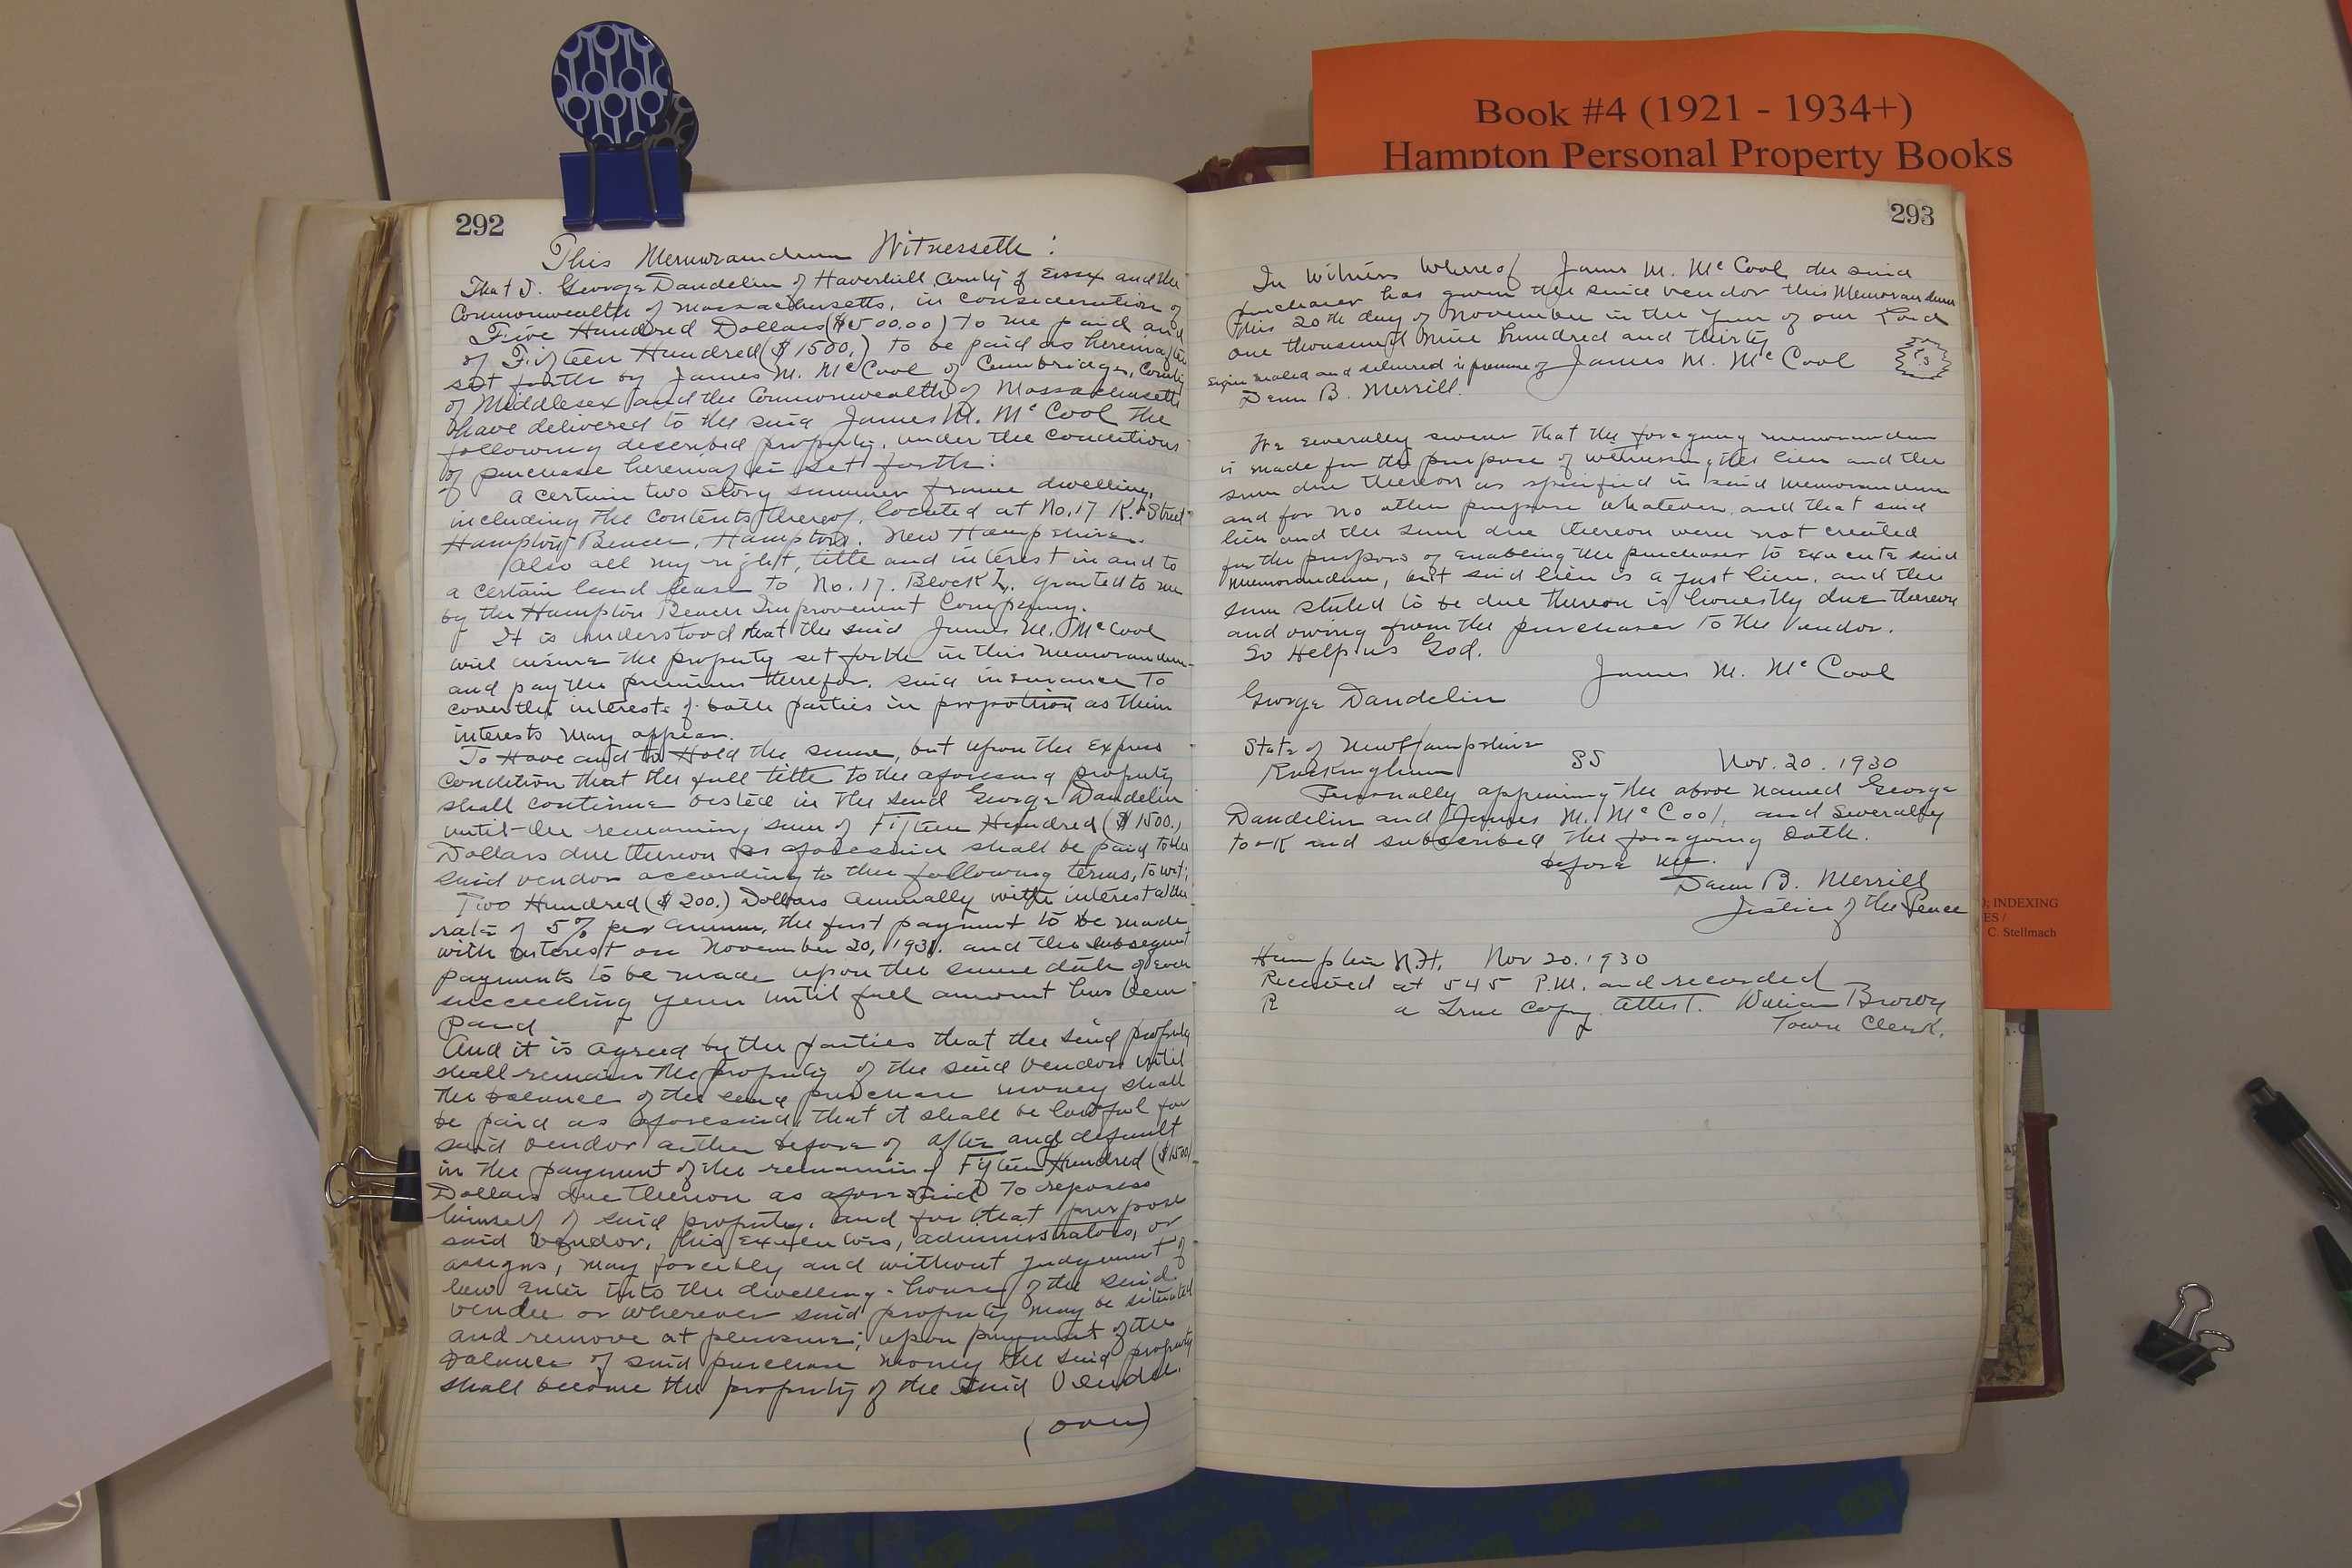 Book #4 (1921 - 1934+)
Hampton Personal Property Books
292
This Memorandum Witnesseth:
That I. George Dandelin of Haverhill, County of Essex and the
Commonwealth of Massachusetts, in consideration of
Five Hundred Dollars ($500.00) to me paid and
of Fifteen Hundred ($1500.) to be paid as hereinafter
set forth by James M. McCool of Cambridge, County
of Middlesex and the Commonwealth of Massachusetts
have delivered to the said James M. McCool the
following described property, under the conditions
of purchase hereinafter set forth:
A certain two story summer frame dwelling,
including the contents thereof, located at No. 17 K. Street
Hampton Beach, Hampton, New Hampshire.
Also all my right, title and interest in and to
a certain land lease to No. 17. Block I, granted to me
by the Hampton Beach Improvement Company.
It is understood that the said James M. McCool
will insure the property set forth in this Memorandum
and pay the premium therefor, said insurance to
cover the interests of both parties in proportion as their
interests may appear.
To Have and to Hold the same, but upon the express
condition that the full title to the aforesaid property
shall continue vested in the said George Dandelin
until the remaining sum of Fifteen Hundred ($1500.)
Dollars due thereon as aforesaid shall be paid to the
said vendor according to the following terms, to wit;
Two Hundred ($200.) Dollars annually with interest at the
rate of 5% per annum, the first payment to be made
with interest on November 20, 1931. and the subsequent
payments to be made upon the same date of each
succeeding year until full amount has been
paid
And it is agreed by the parties that the said property
shall remain the property of the said Vendor until
the balance of the said purchase money shall
be paid as aforesaid, that it shall be lawful for
said vendor either before of after and default
in the payment of the remaining Fifteen Hundred ($1500)
Dollars due thereon as aforesaid To reposess
himself of said property, and for that purpose
said Vendor, his Executors, administrators, or
assigns, may forcibly and without Judgment of
law enter into the dwelling-house of the said
vendee or wherever said property may be situated
and remove at pleasure; upon payment of the
balance of said purchase money the said property
shall become the property of the said Vendee.
(over)
293
In Witness Whereof James M. McCool the said
purchaser has given the said vendor this Memorandum
this 20th day of November in the year of our Lord
one thousand nine hundred and thirty
Signed sealed and delivered in presence of James M. McCool
Ls
Dean B. Merrill.
We severally swear that the foregoing memorandum
is made for the purpose of witnessing the lien and the
sum due thereon as specified in said Memorandum
and for no other purpose whatever, and that said
lien and the sum due thereon were not created
for the purpose of enabling the purchaser to execute said
Memorandum, but said lien is a just lien, and the
sum stated to be due thereon is honestly due thereon
and owing from the purchaser to the Vendor.
So Help us God.
James M. McCool
George Dandelin
State of New Hampshire
Rockingham SS Nov. 20. 1930
Personally appearing the above named George
Dandelin and James M. McCool, and severally
took and subscribed the foregoing Oath.
before me.
Dean B. Merrill
Justice of the Peace
Hampton N.H. Nov 20. 1930
Received at 545 P.M. and recorded
R a True Copy. Attest. William Brown
Town Clerk.
INDEXING
ES /
C. Stellmach